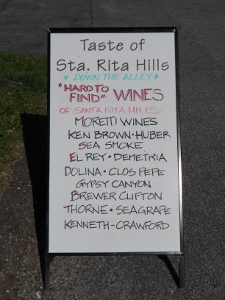 Taste of
Sta. Rita Hills
DOWN THE ALLEY
"HARD TO
FIND" WINES
OF SANTA RITA HILLS:-
MORETTI WINES
KEN BROWN · HUBER
SEA SMOKE
EL REY · DEMETRIA
DOLINA · CLOS PEPE
GYPSY CANYON
BREWER CLIFTON
THORNE · SEAGRAPE
KENNETH-CRAWFORD